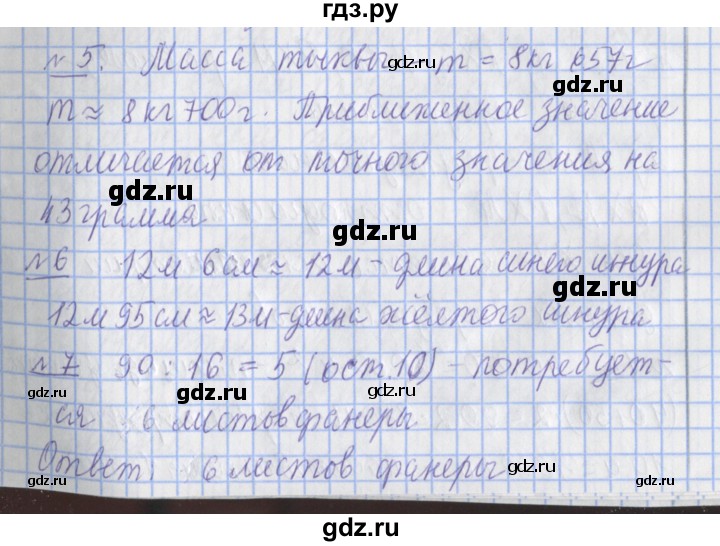 гдз.ру
№5. Масса тыквы m = 8кг 657г
m ≈ 8кг 700г. Приближенное значение
отличается от точного значения на
gdz.ru
43 грамма
gdz.ru
gdz.ru
№6 12м 6см ≈ 12м - длина синего шнура
gdz.ru
12м 95см ≈ 13м - длина жёлтого шнура
gdz.ru
№7 90 : 16 = 5 (ост. 10) - потребует-
gdz.ru
gdz.ru
gdz.ru
ся 6 листов фанеры
Ответ: 6 листов фанеры
gdz.ru
gdz.ru
gdz.ru